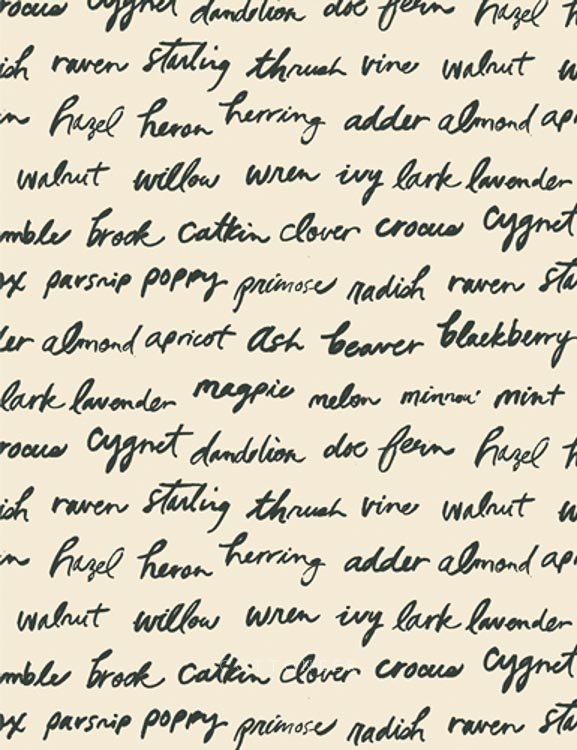 rocus cygnet dandelion doe fern hazel h
ish raven starling thrush vine walnut w
rn hazel heron herring adder almond apr
walnut willow wren ivy lark lavender
mble brook catkin clover crocus cygnet
ox parsnip poppy primose radish raven sta
der almond apricot ash beaver blackberry
lark lavender magpie melon minnow mint
rocus cygnet dandelion doe fern hazel h
ish raven starling thrush vine walnut w
rn hazel heron herring adder almond apr
walnut willow wren ivy lark lavender
mble brook catkin clover crocus cygnet
ox parsnip poppy primose radish raven sta